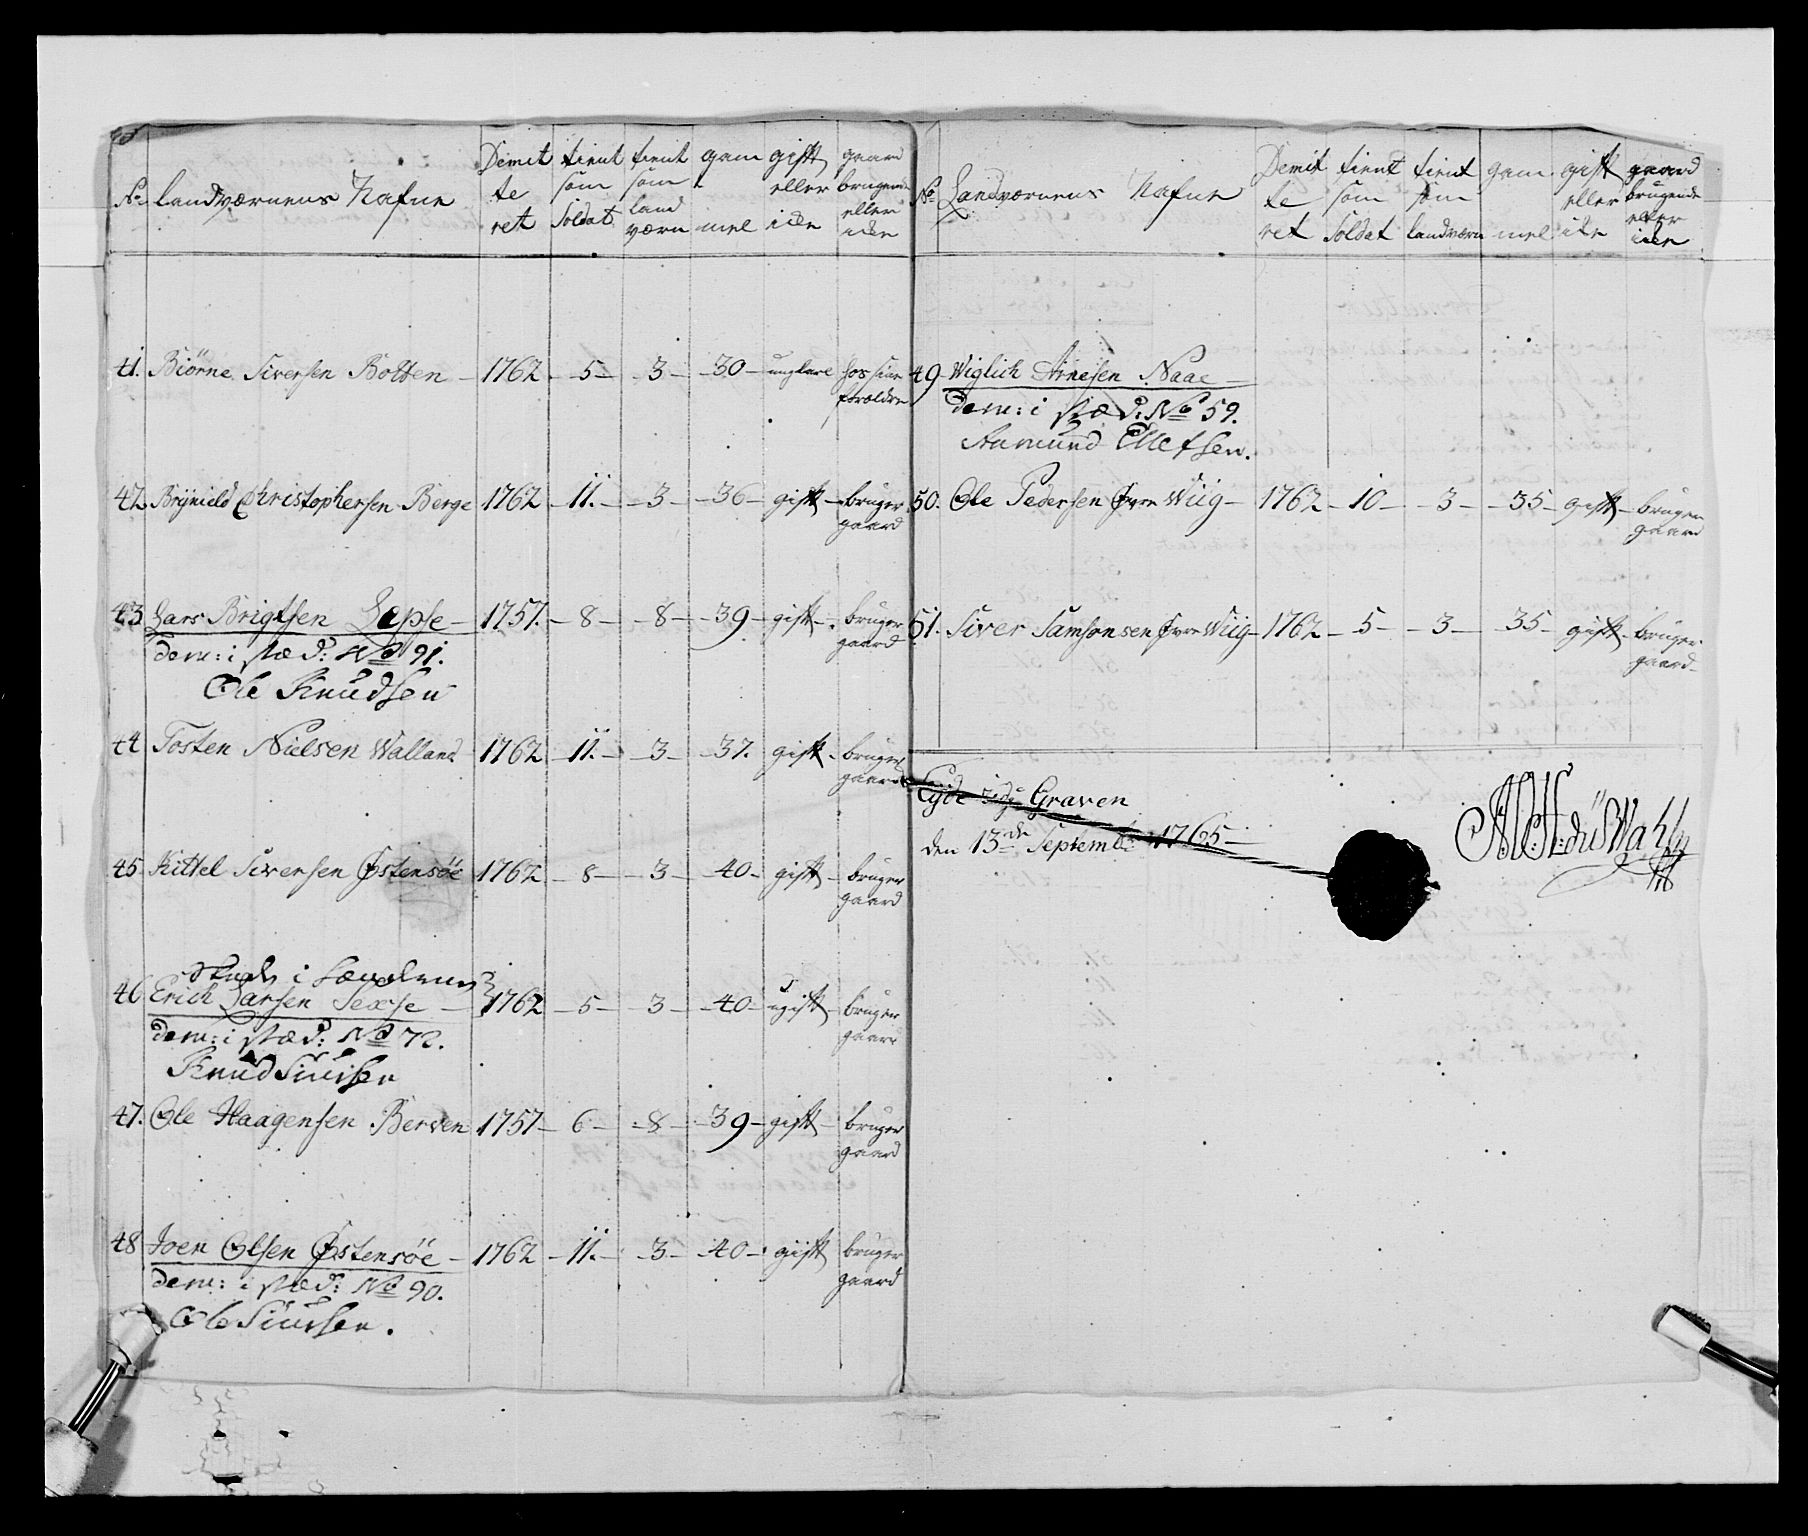 No. Landværnens Nafne Demitteret tient som Soldat tient som land værn gammel gift eller icke gaard brugende eller icke
41. Biörne Siversen Botten – 1762 – 5 – 3 – 30 – ungkare hos sine forældre
42. Brÿnield Christophersen Berge 1762 – 11. – 3 – 36 – gift – bruger gaard
43 Lars Brigtsen Sepse – 1757. – 8 – 8 – 39 – gift – bruger gaard
dem: i stæd: No 91.
Ole Knudsen
44 Tosten Nielsen Walland 1762 – 11. – 3 – 37. gift – bruger gaard
45 Kittel Siversen Østensöe 1762 – 8 – 3 – 40 – gift – bruger gaard
i
46 Erich Larsen Sexse – 1762 – 5 – 3 – 40 – ugift – bruger gaard
dem: i stæd: No 72.
Knud Siursen
47. Ole Haagensen Berven 1757 – 6 – 8 – 39 – gift – bruger gaard
48 Joen Olsen Østensöe – 1762 – 11. – 3 – 40 – gift bruger gaard
dem: i stæd: No 90.
Ole Siursen.
No Landværnens Nafne Demitteret tient som Soldat tient som landværn gammel gift eller icke gaard brugende eller icke
49 Wiglich Arnesen Naae –
dem: i stæd: No 59.
Aamund Ellefsen.
50. Ole Pedersen Øvre Wiig – 1762 – 10 – 3 – 35 – gift – bruger gaard
51. Siver Samsonsen Øvre Wiig – 1762 – 5 – 3 – 35 – gift – bruger gaard
Eyde udj Graven
den 13de Septembr 1765 –